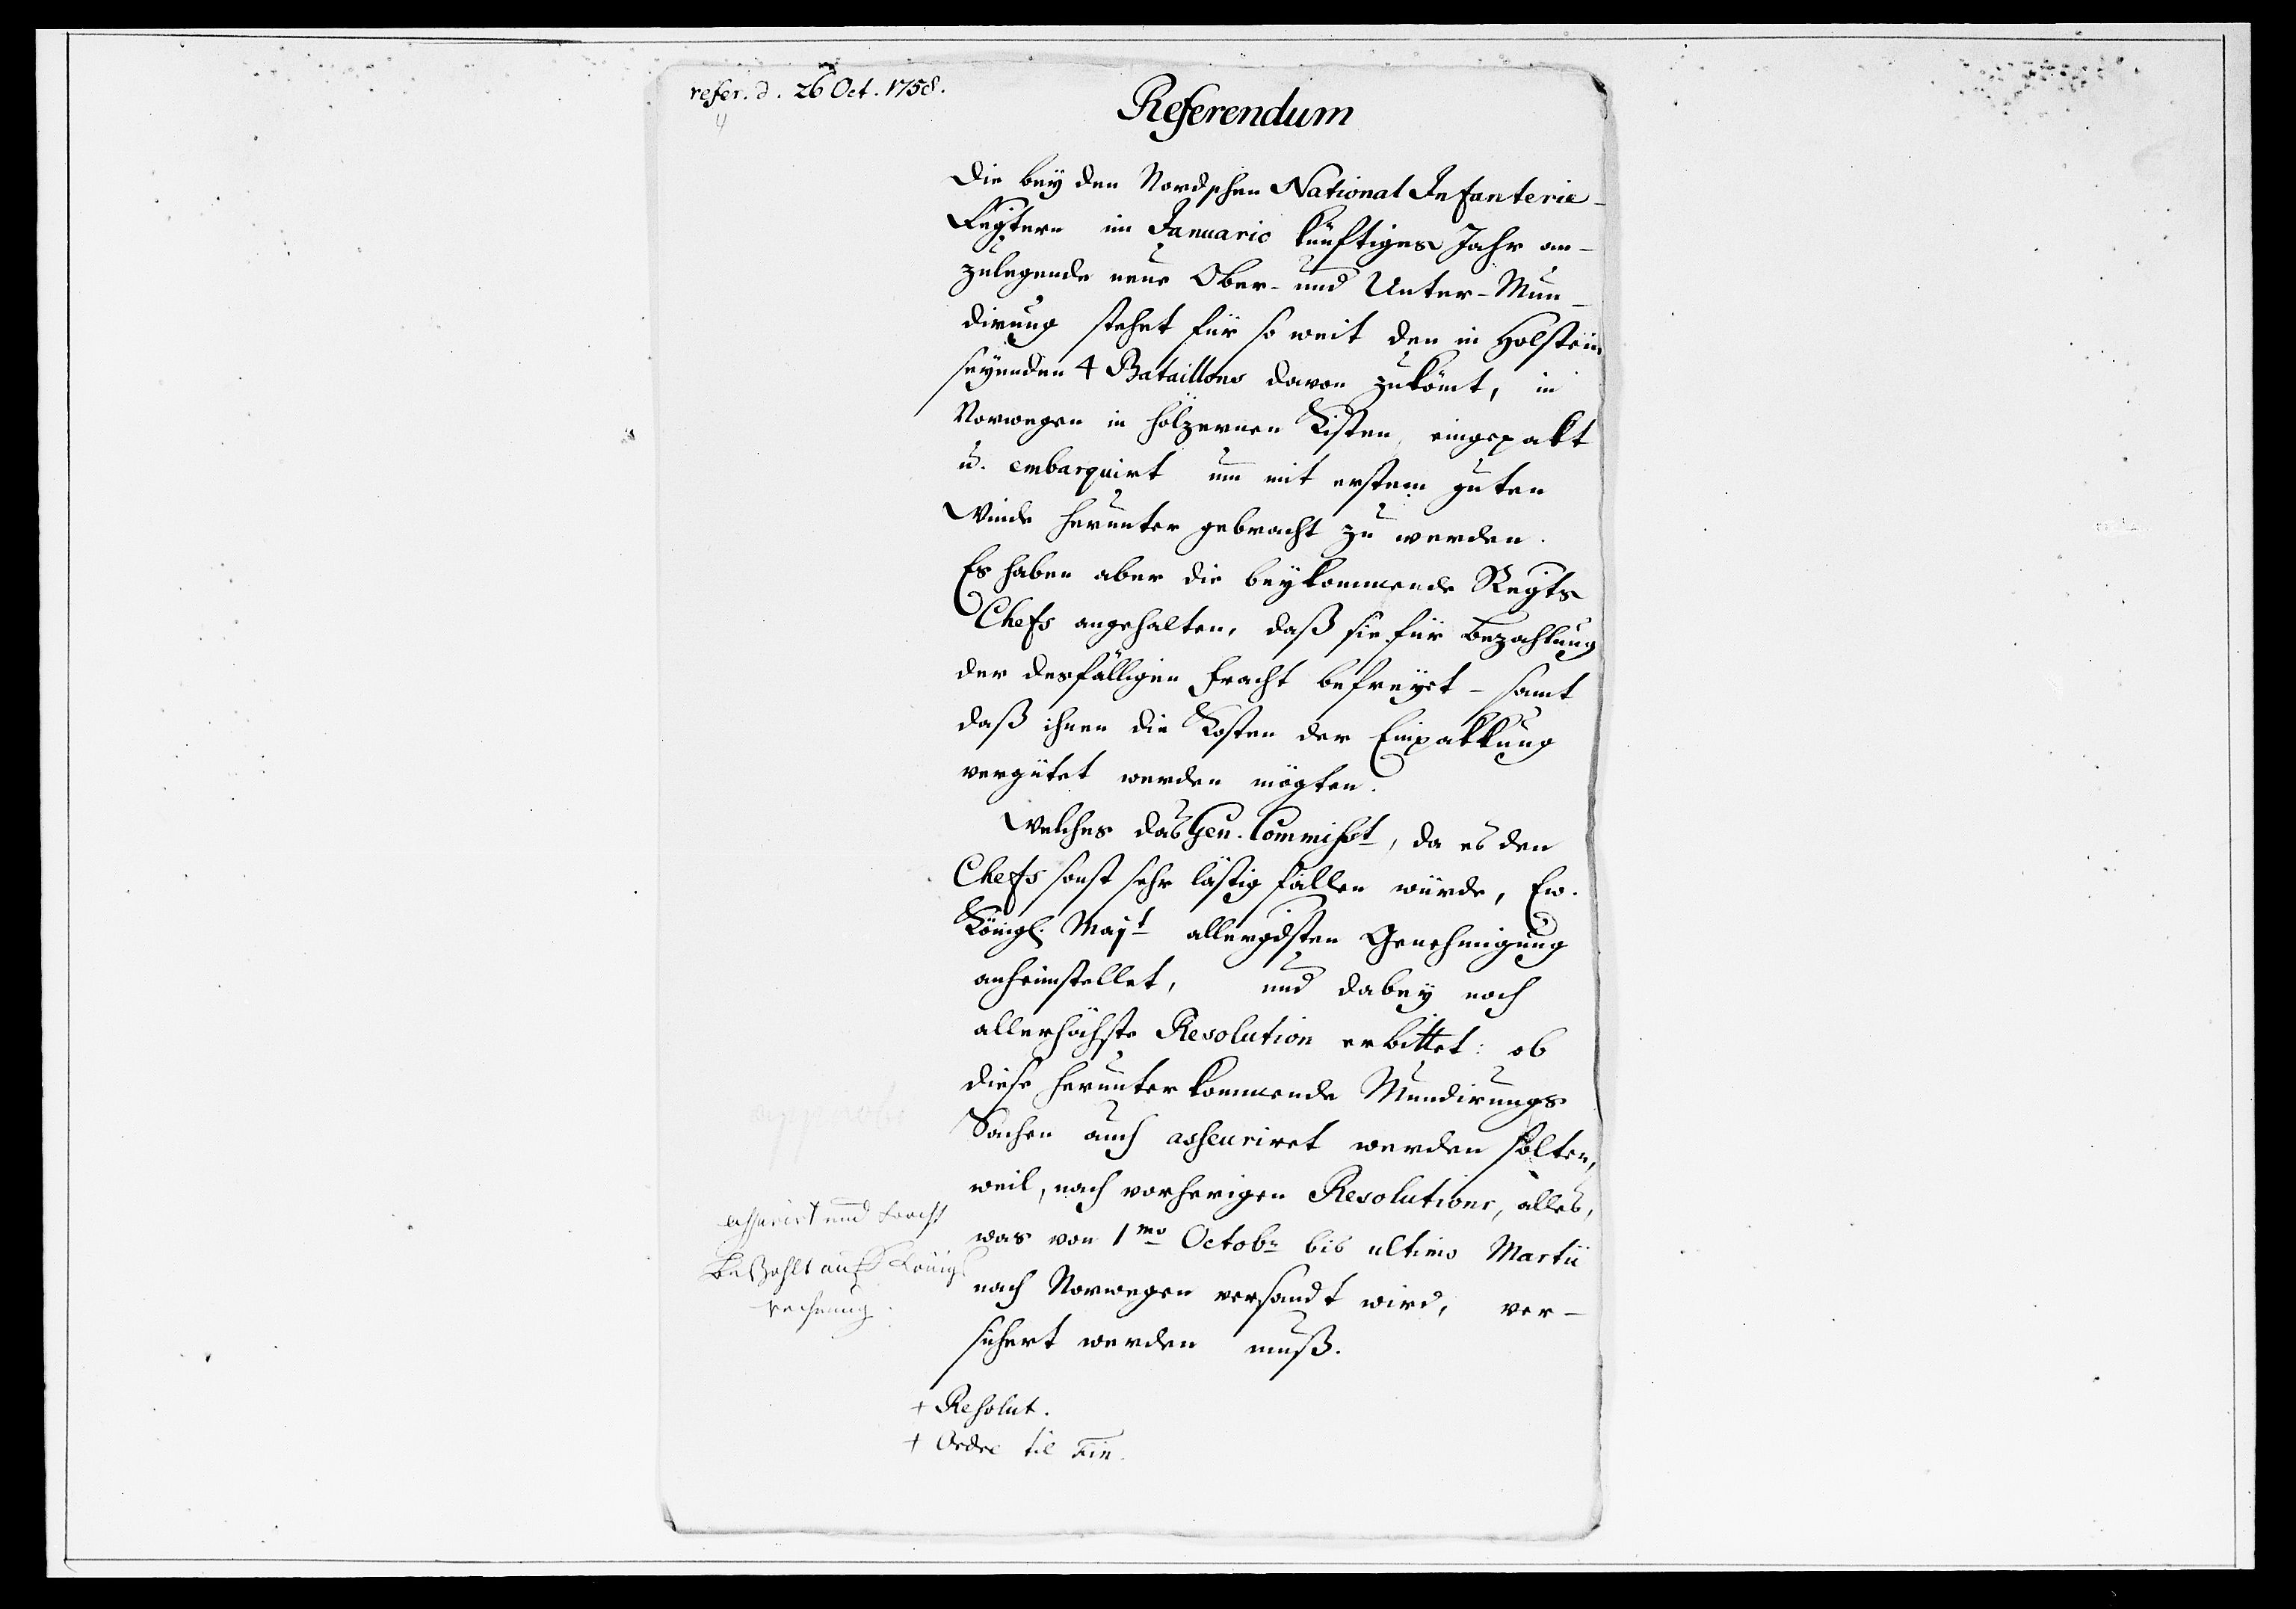 refer. d. 26 Oct. 1758.
4
Referendum
Die bey den Nordschen National Infanterie-
Regtern im Januario künftiges Jahr an-
zulegende neue Ober- und Unter-Mun-
dirung stehet für so weit den in Holstein
seyenden 4 Bataillons davon zukömt, in
Norwegen in hölzernen Kisten, eingepakt
u. embarquirt um mit erstem guten
Winde herunter gebracht zu werden.
Es haben aber die beykommende Regts
Chefs angehalten, daß sie für Bezahlung
der desfälligen Fracht befreyet - samt
daß ihnen die Kosten der Einpakkung
vergütet werden mögten.
Welches das Gen. Commisst, da es den
Chefs sonst sehr lästig fallen würde, Ew.
Königl. Majt allergdsten Genehmigung
anheimstellet, und dabey noch
allerhöchste Resolution erbittet: ob
diese herunter kommende Mundirungs
Sachen auch asseuriret werden solten,
weil, nach vorherigen Resolutions, alles,
was von 1mo Octobr bis ultimo Martii
nach Norwegen versandt wird, ver-
sichert werden muß.
approbe
assurirt und Fracht
bezahlt auf Königl
rechnung.
+ Resolut.
+ Ordre til Fin.